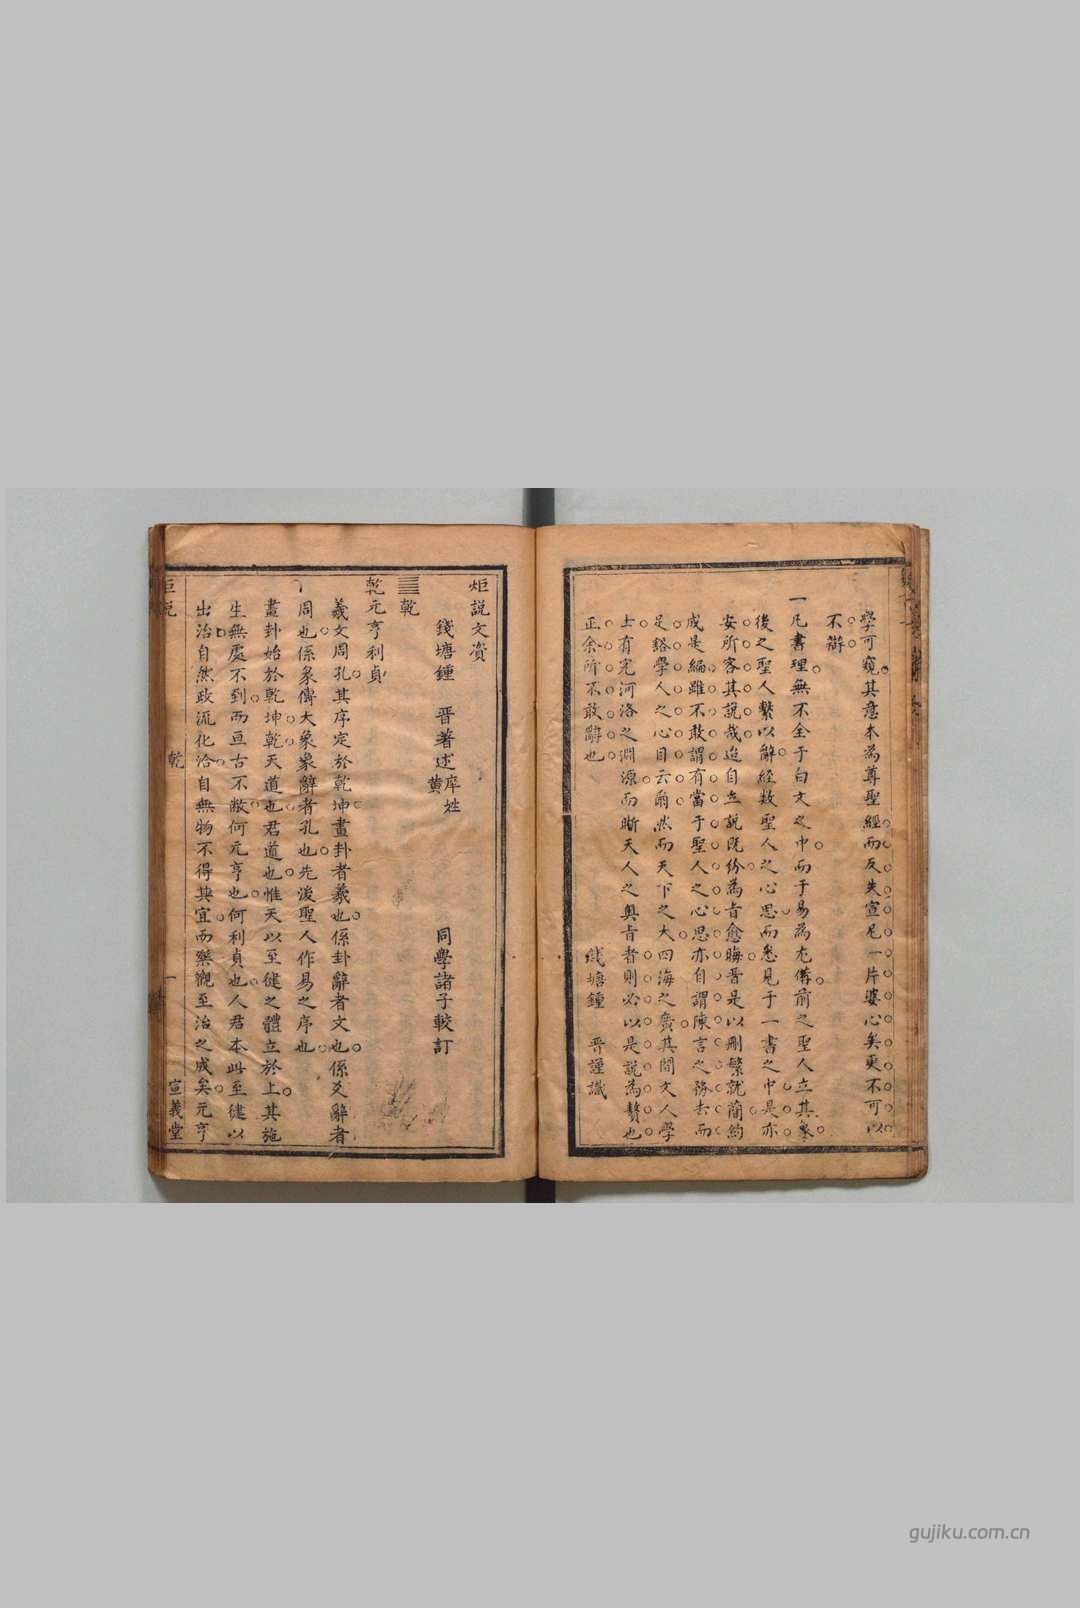 學可窺其意本為尊聖經而反失宣尼一片婆心矣更不可以
不辯
一凡書理無不全于白文之中而于易為尤備前之聖人立其象
後之聖人繫以辭經數聖人之心思而悉見于一書之中是亦
安所容其說哉迨自立說既紛為旨愈晦晋是以刪繁就蕳約
成是編雖不敢謂有當于聖人之心思亦自謂陳言之務去而
足豁學人之心目云爾然而天下之大四海之廣其間文人學
士有究河洛之淵源而晰天人之奥旨者則必以是説為贅也
正余所不敢辭也
錢塘鍾晋謹識
炬説文資
錢塘鍾晋著述
庠姓黄
同學諸子較訂
䷀乾
乾元亨利貞
羲文周孔其序定於乾坤畫卦者羲也係卦辭者文也係爻辭者
周也係彖傳大象象辭者孔也先後聖人作易之序也
畫卦始於乾坤乾天道也君道也惟天以至健之體立於上其施
生無處不到而亘古不敝何元亨也何利貞也人君本此至健以
出治自然政流化洽自無物不得其宜而樂觀至治之成矣元亨
炬説
乾
一
宣義堂
gujiku.com.cn